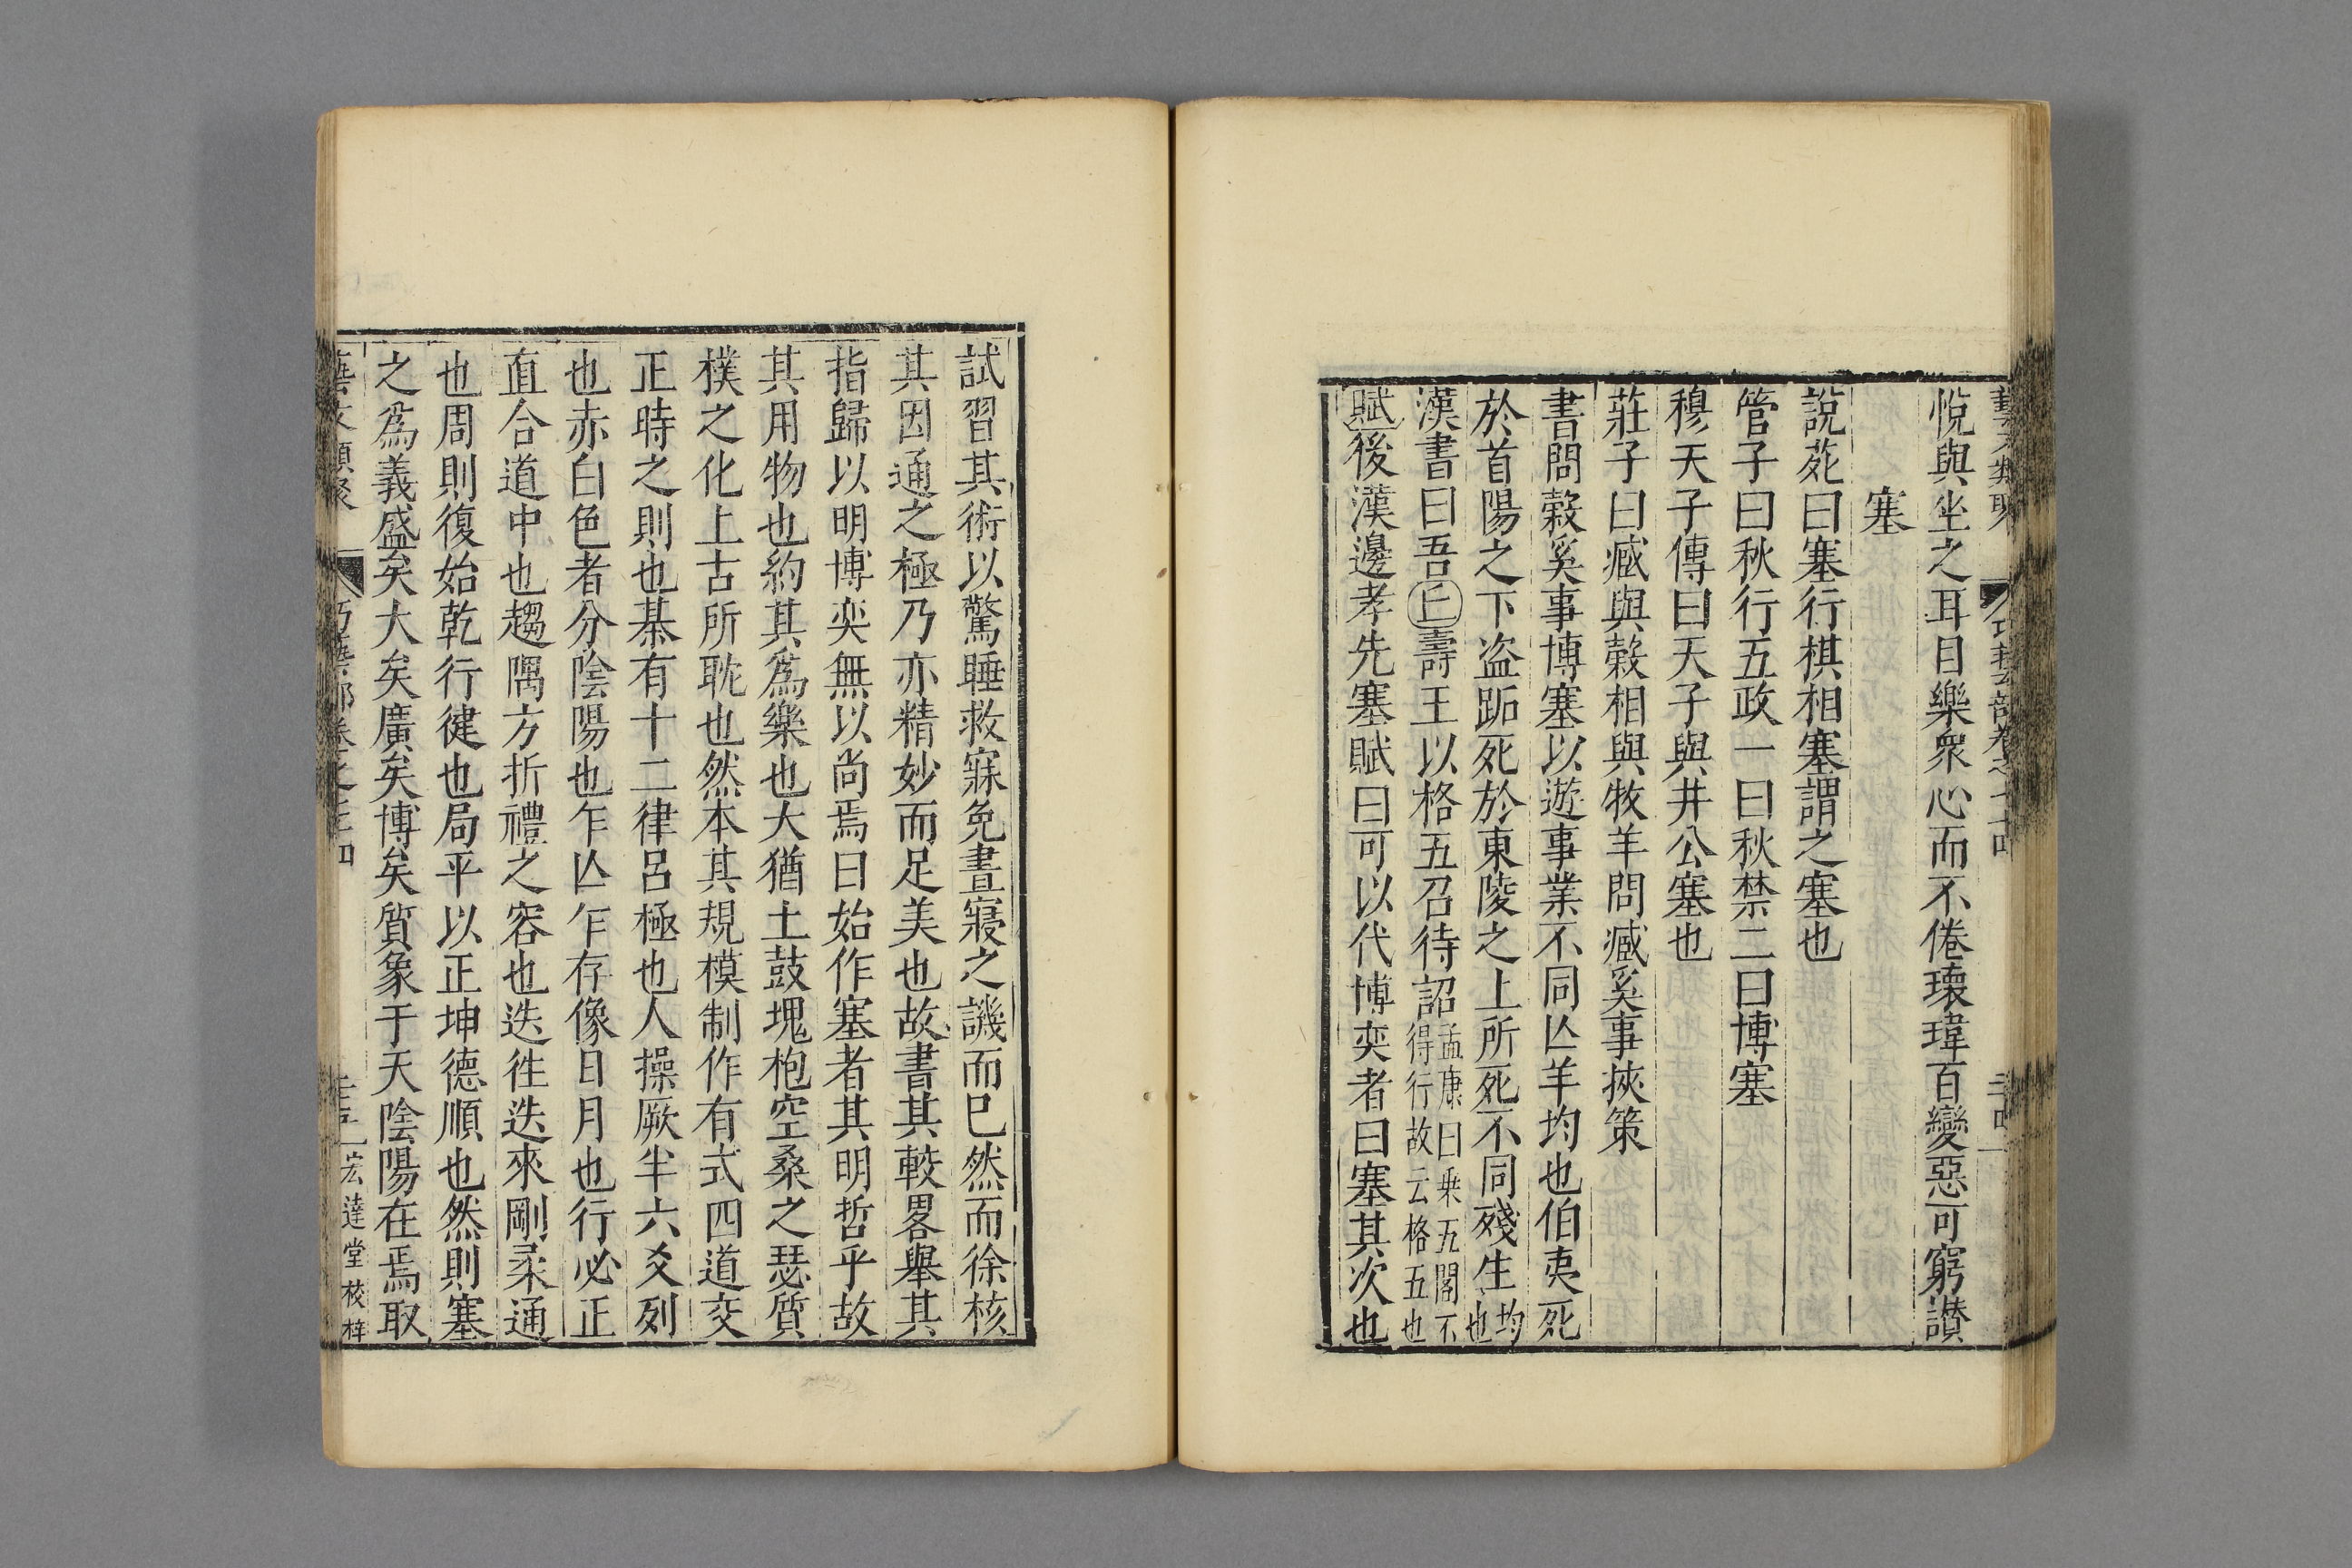 悅與坐之耳目樂衆心而不倦瓌瑋百變惡可窮讃
塞
說苑曰塞行棋相塞謂之塞也
管子曰秋行五政一曰秋禁二曰博塞
穆天子傳曰天子與井公塞也
莊子曰臧與榖相與牧羊問臧奚事挾策
書問榖奚事博塞以遊事業不同亾羊均也伯夷死
於首陽之下盜跖死於東陵之上所死不同殘生均也
漢書曰吾丘壽王以格五召待詔孟康曰乗五閣不得行故云格五也
賦後漢邊孝先塞賦曰可以代博奕者曰塞其次也
試習其術以驚睡救寐免晝寢之譏而已然而徐核
其因通之極乃亦精妙而足美也故書其較畧舉其
指歸以明博奕無以尚焉曰始作塞者其明哲乎故
其用物也約其爲樂也大猶土鼓塊枹空桑之瑟質
樸之化上古所耽也然本其規模制作有式四道交
正時之則也棊有十二律呂極也人操厥半六爻列
也赤白色者分陰陽也乍亾乍存像日月也行必正
直合道中也趨隅方折禮之容也迭徃迭來剛柔通
也周則復始乾行健也局平以正坤德順也然則塞
之爲義盛矣大矣廣矣博矣質象于天陰陽在焉取
宏達堂校梓